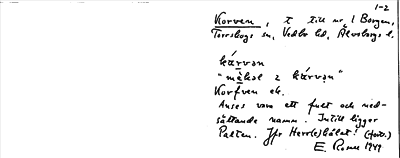 1-2
Korven, t till nr 1 Borgen,
Torsbogs sn, Vedbo hd, Älvsborgs l.
kárvən
"mǻkəl ɪ kárvən"
Korfven ek.
Anses vara ett fult och ned-
sättande namn. Intill ligger
Palten. Jfr Herr(e)kålat! (forts.)
E. Rosell 1949